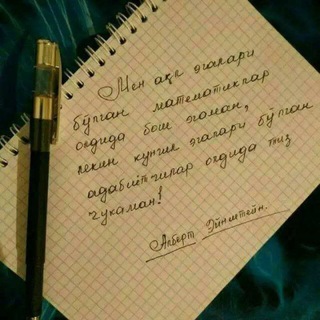 Мен ақл эгалари
бўлган математиклар
олдида бош эгаман,
лекин кўнгил эгалари бўлган
адабиётчилар олдида тиз
чукаман!
Алберт Эйнштейн.